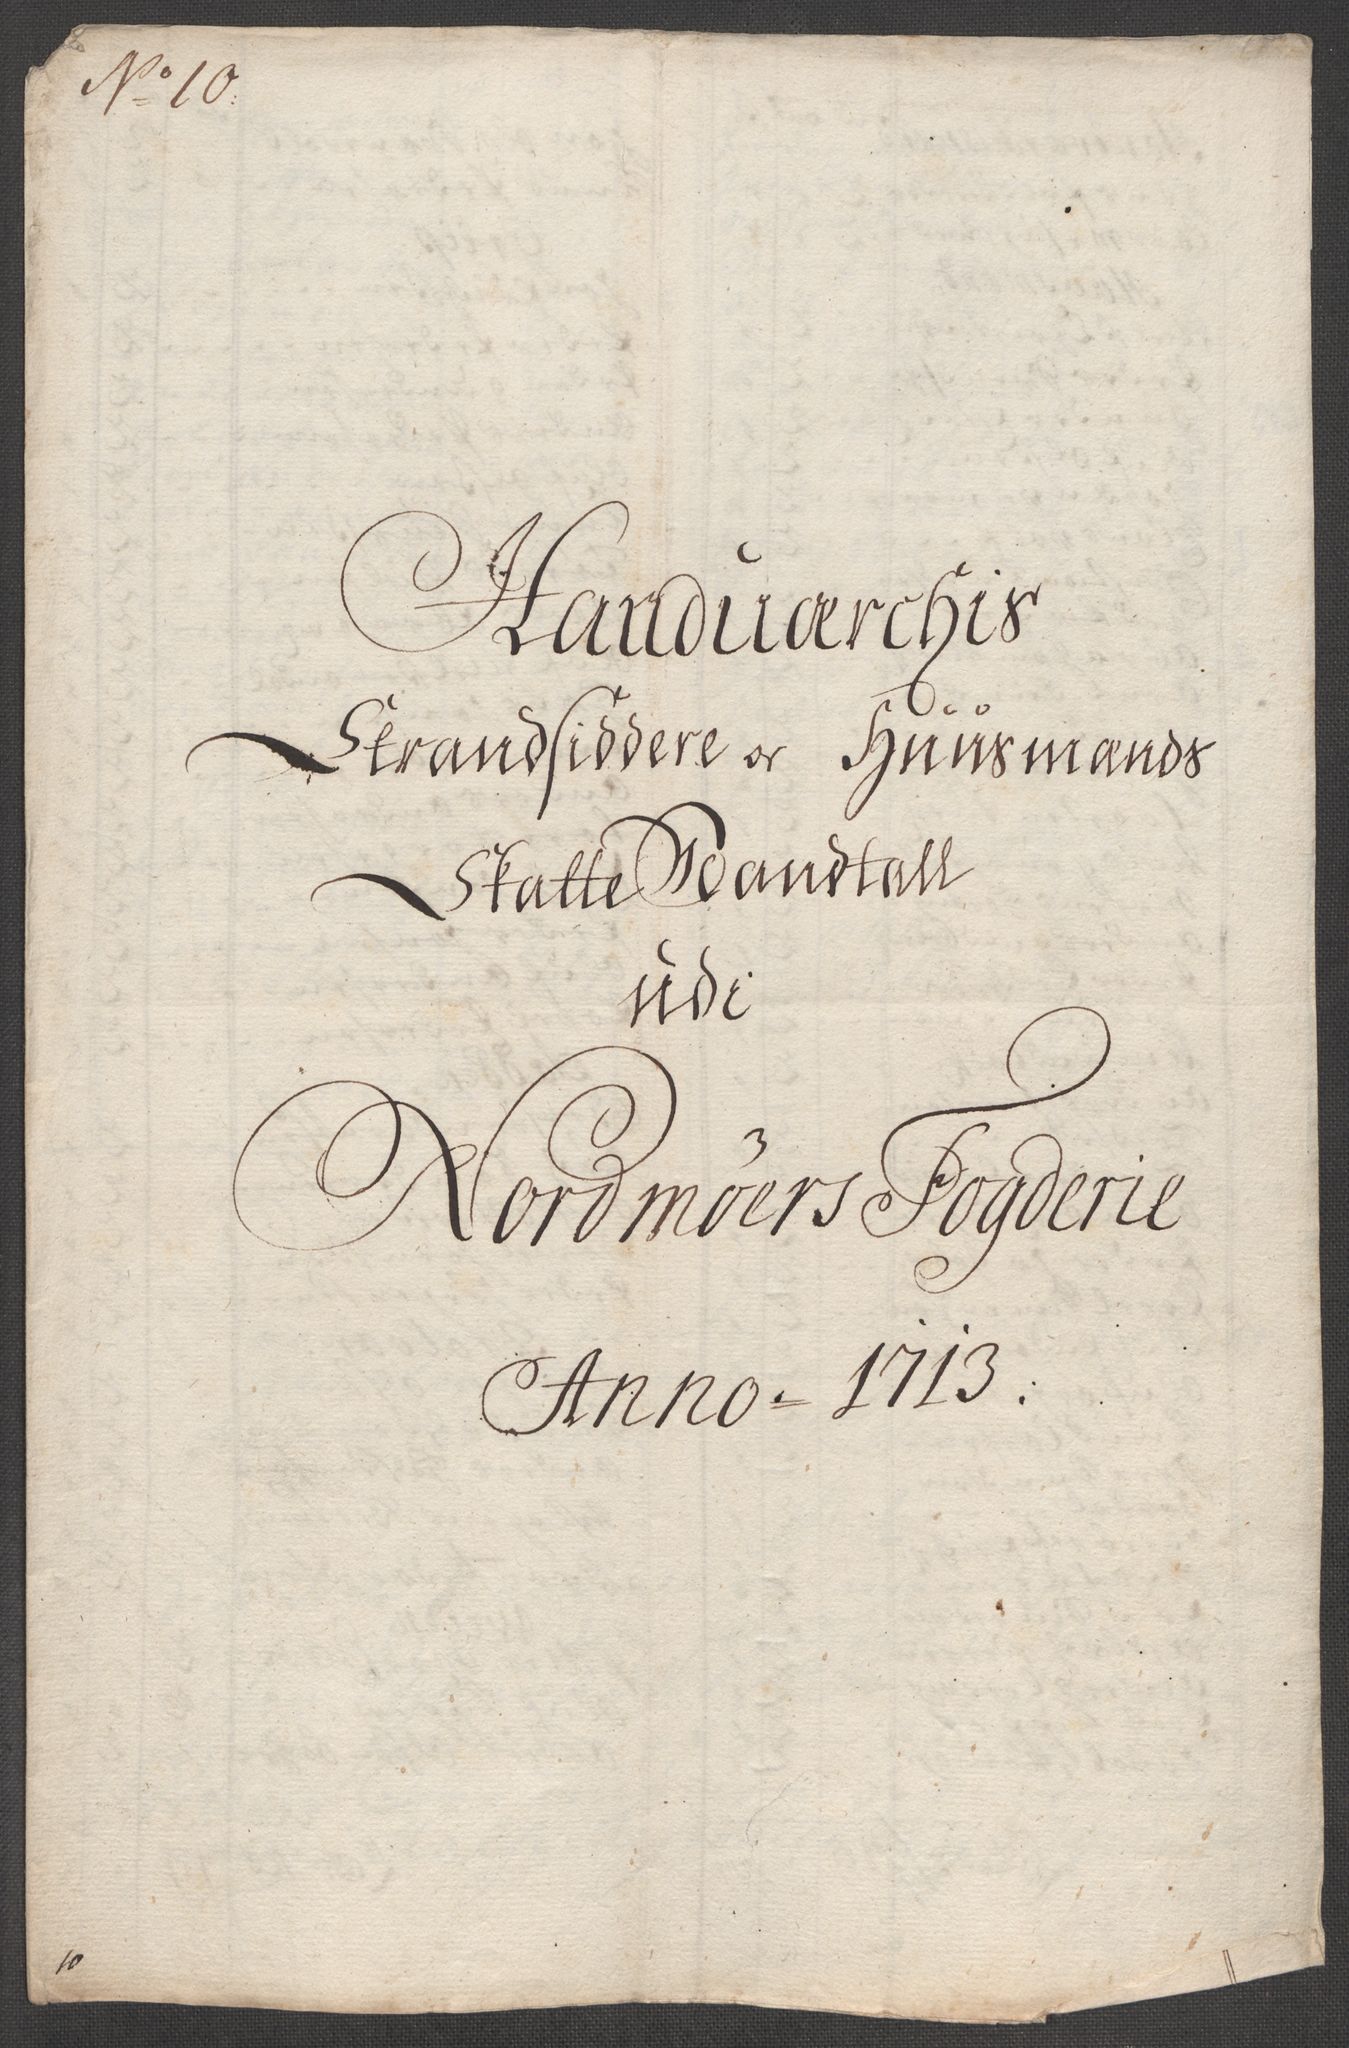 No 10:
Handuærchis
Strandsiddere or Huusmænds
Skatte Mandtall
udi
Nordmöers Fogderie
Anno = 1713:
10